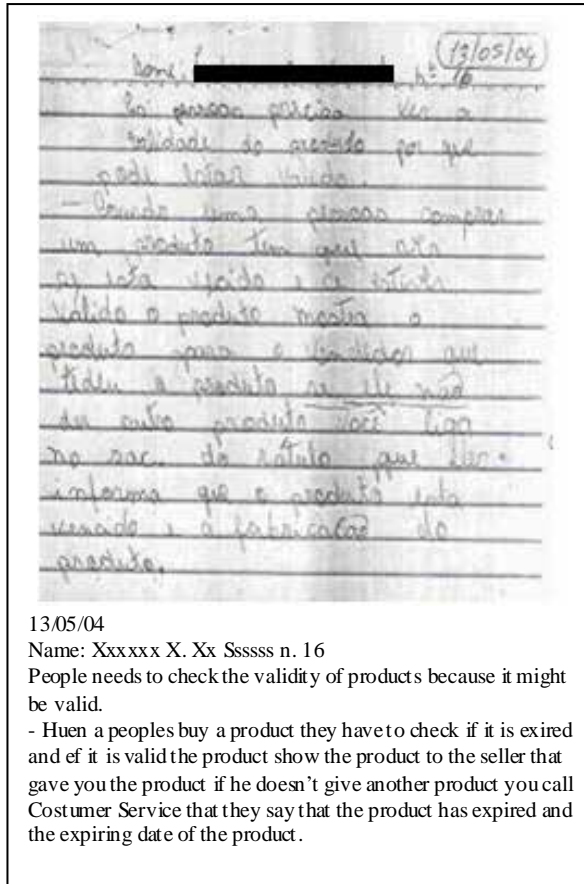 13/05/04
Nome: nº 16
pessoas ver a
validade do produto por que
pode estar valido.
- uma pessoas comprar
um produto tem que
esta e
valido o produto mostra o
produto para o vendedor que
tideu o produto se ele não
der outro produto você liga
no sac. do rótulo que
informa que o produto esta
e a fabricacão do
produto.
13/05/04
Name: Xxxxxx X. Xx Ssssss n. 16
People needs to check the validity of products because it might
be valid.
- Huen a peoples buy a product they have to check if it is exired
and ef it is valid the product show the product to the seller that
gave you the product if he doesn't give another product you call
Costumer Service that they say that the product has expired and
the expiring date of the product.